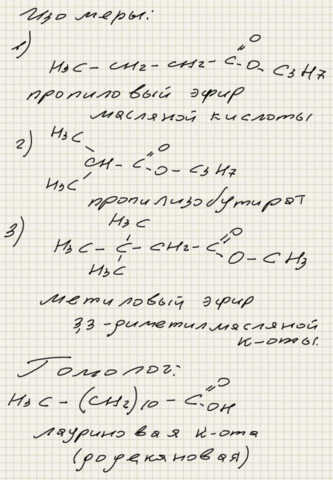 Изомеры:
1)
H3C – CH2 – CH2 – C =O – O – C3H7
пропиловый эфир
масляной кислоты
2)
H3C
CH – C =O – O – C3H7
H3C
пропилизобутират
3)
H3C
H3C – C – CH2 – C =O
H3C O – CH3
метиловый эфир
3,3-диметилмасляной
к-оты.
Гомолог:
H3C – (CH2)10 – C =O OH
лауриновая к-ота
(додекановая)